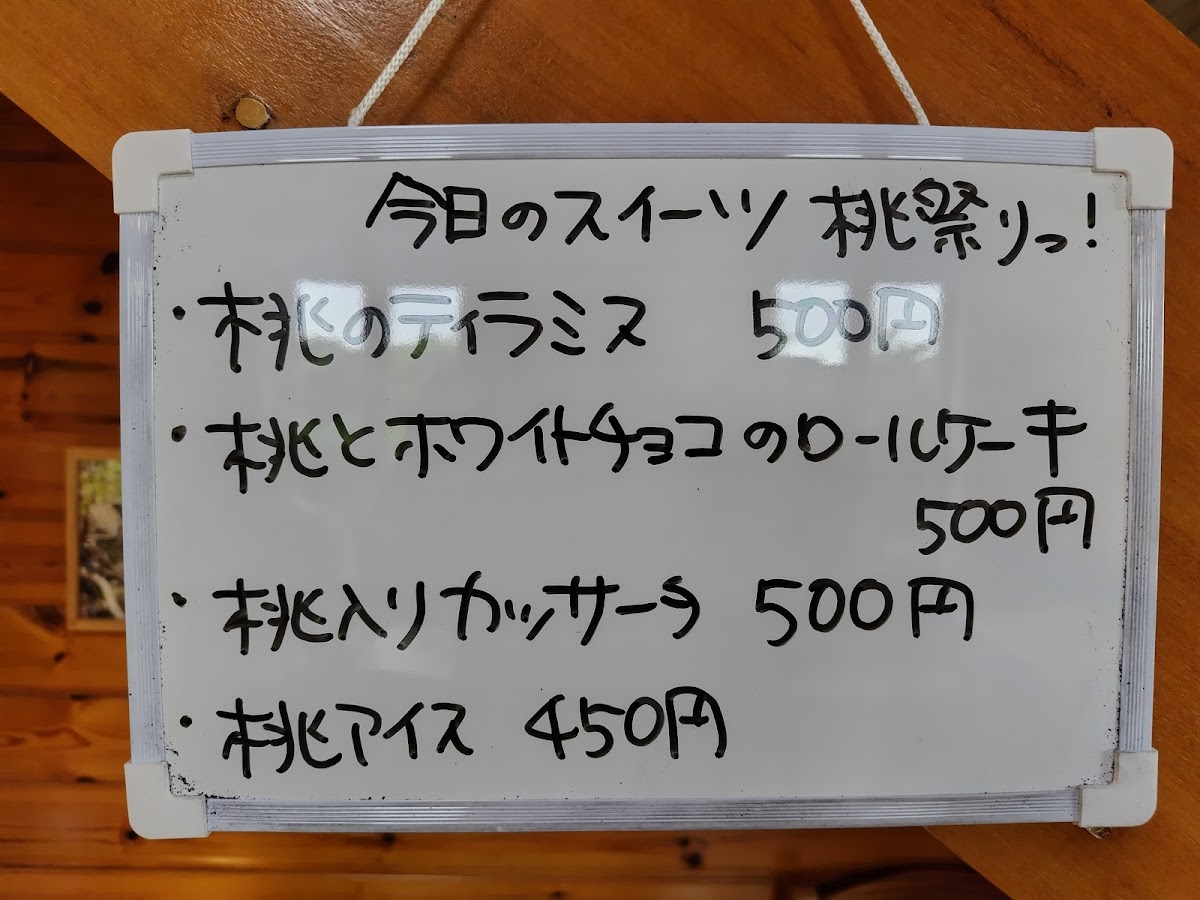 今日のスイーツ 桃祭りっ!
・桃のティラミス 500円
・桃とホワイトチョコのロールケーキ
500円
・桃入りカッサータ 500円
・桃アイス 450円